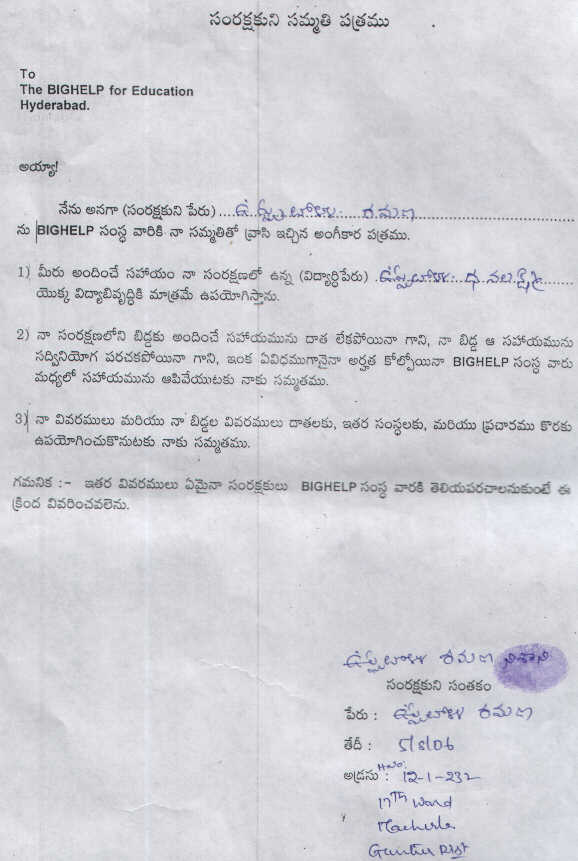 సంరక్షకుని సమ్మతి పత్రము
To
The BIGHELP for Education
Hyderabad.
అయ్యా!
నేను అనగా (సంరక్షకుని పేరు) .... రమణ
ను BIGHELP సంస్థ వారికి నా సమ్మతితో వ్రాసి ఇచ్చిన అంగీకార పత్రము.
1) మీరు అందించే సహాయం నా సంరక్షణలో ఉన్న (విద్యార్ధిపేరు)
యొక్క విద్యాబివృద్ధికి మాత్రమే ఉపయోగిస్తాను.
2) నా సంరక్షణలోని బిడ్డకు అందించే సహాయమును దాత లేకపోయినా గాని, నా బిడ్డ ఆ సహాయమును
సద్వినియోగ పరచకపోయినా గాని, ఇంక ఏవిధముగానైనా అర్హత కోల్పోయినా BIGHELP సంస్థ వారు
మధ్యలో సహాయమును ఆపివేయుటకు నాకు సమ్మతము.
3) నా వివరములు మరియు నా బిడ్డల వివరములు దాతలకు, ఇతర సంస్థలకు, మరియు ప్రచారము కొరకు
ఉపయోగించుకొనుటకు నాకు సమ్మతము.
గమనిక :- ఇతర వివరములు ఏమైనా సంరక్షకులు BIGHELP సంస్థ వారకి తెలియపరచాలనుకుంటే ఈ
క్రింద వివరించవలెను.
రమణ నిశాని
సంరక్షకుని సంతకం
పేరు : రమణ
తేదీ : 5/8/06
అడ్రసు : H.No: 12-1-232
17th Ward
Macherla
Guntur Dist